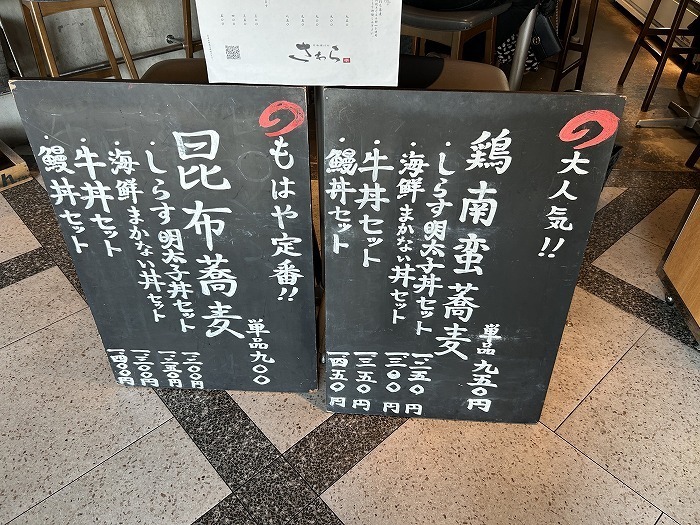 さわら
の
大人気!!
鶏南蛮蕎麦 単品 九五〇円
・しらす明太子丼セット 一二五〇円
・海鮮まかない丼セット 一三〇〇円
・牛丼セット 一三五〇円
・鰻丼セット 一四五〇円
の
もはや定番!!
昆布蕎麦 単品九〇〇
・しらす明太子丼セット 一二〇〇円
・海鮮まかない丼セット 一二五〇円
・牛丼セット 一三〇〇円
・鰻丼セット 一四〇〇円